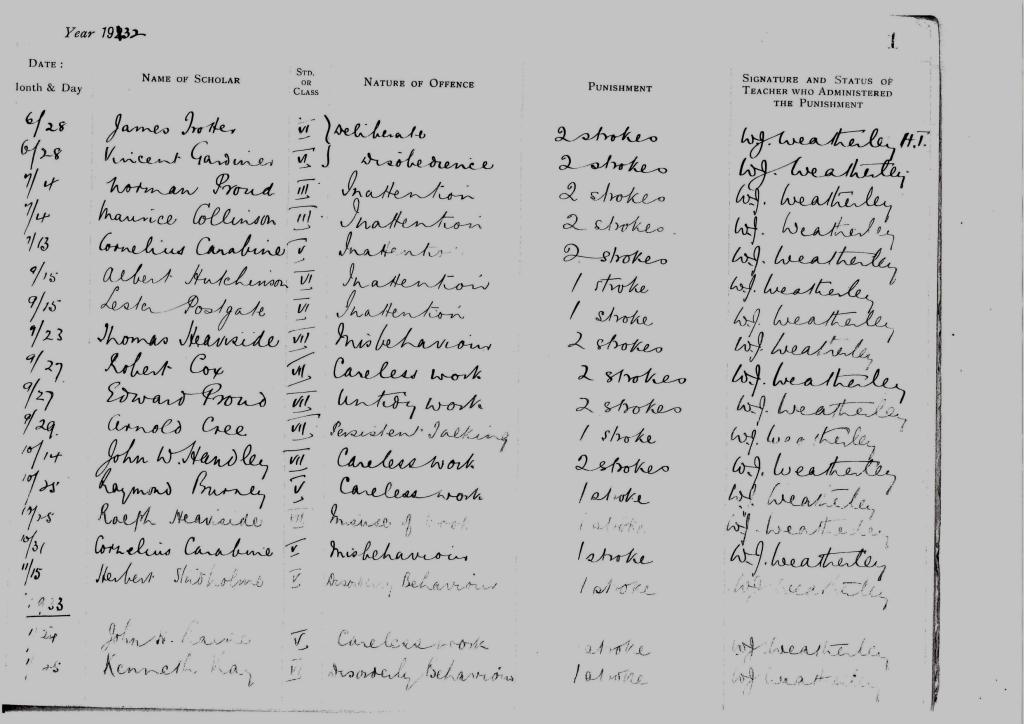 Year 1932
1
DATE:
Month & Day
NAME OF SCHOLAR
STD. OR CLASS
NATURE OF OFFENCE
PUNISHMENT
SIGNATURE AND STATUS OF TEACHER WHO ADMINISTERED THE PUNISHMENT
6/28 James Trotter VI Deliberate 2 strokes W.J. Weatherley H.T.
6/28 Vincent Gardiner VI Disobedience 2 strokes W.J. Weatherley
7/4 Norman Proud III Inattention 2 strokes W.J. Weatherley
7/4 Maurice Collinson III Inattention 2 strokes W.J. Weatherley
7/13 Cornelius Carabine V Inattentio 2 strokes W.J. Weatherley
9/15 Albert Hutchinson VI Inattention 1 stroke W.J. Weatherley
9/15 Lester Postgate VI Inattention 1 stroke W.J. Weatherley
9/23 Thomas Heaviside VII Misbehaviour 2 strokes W.J. Weatherley
9/27 Robert Cox VII Careless work 2 strokes W.J. Weatherley
9/27 Edward Proud VII Untidy work 2 strokes W.J. Weatherley
9/29 Arnold Cree VII Persistent Talking 1 stroke W.J. Weatherley
10/14 John W. Handley VII Careless work 2 strokes W.J. Weatherley
10/25 Raymond Burney V Careless work 1 stroke W.J. Weatherley
10/25 Ralph Heaviside Misuse of book 1 stroke W.J. Weatherley
10/31 Cornelius Carabine V Misbehaviour 1 stroke W.J. Weatherley
11/15 Herbert V Disorderly Behaviour 1 stroke W.J. Weatherley
1933
1/24 John V Careless work stroke W.J. Weatherley
1/25 Kenneth Kay Disorderly Behaviour 1 stroke W.J. Weatherley